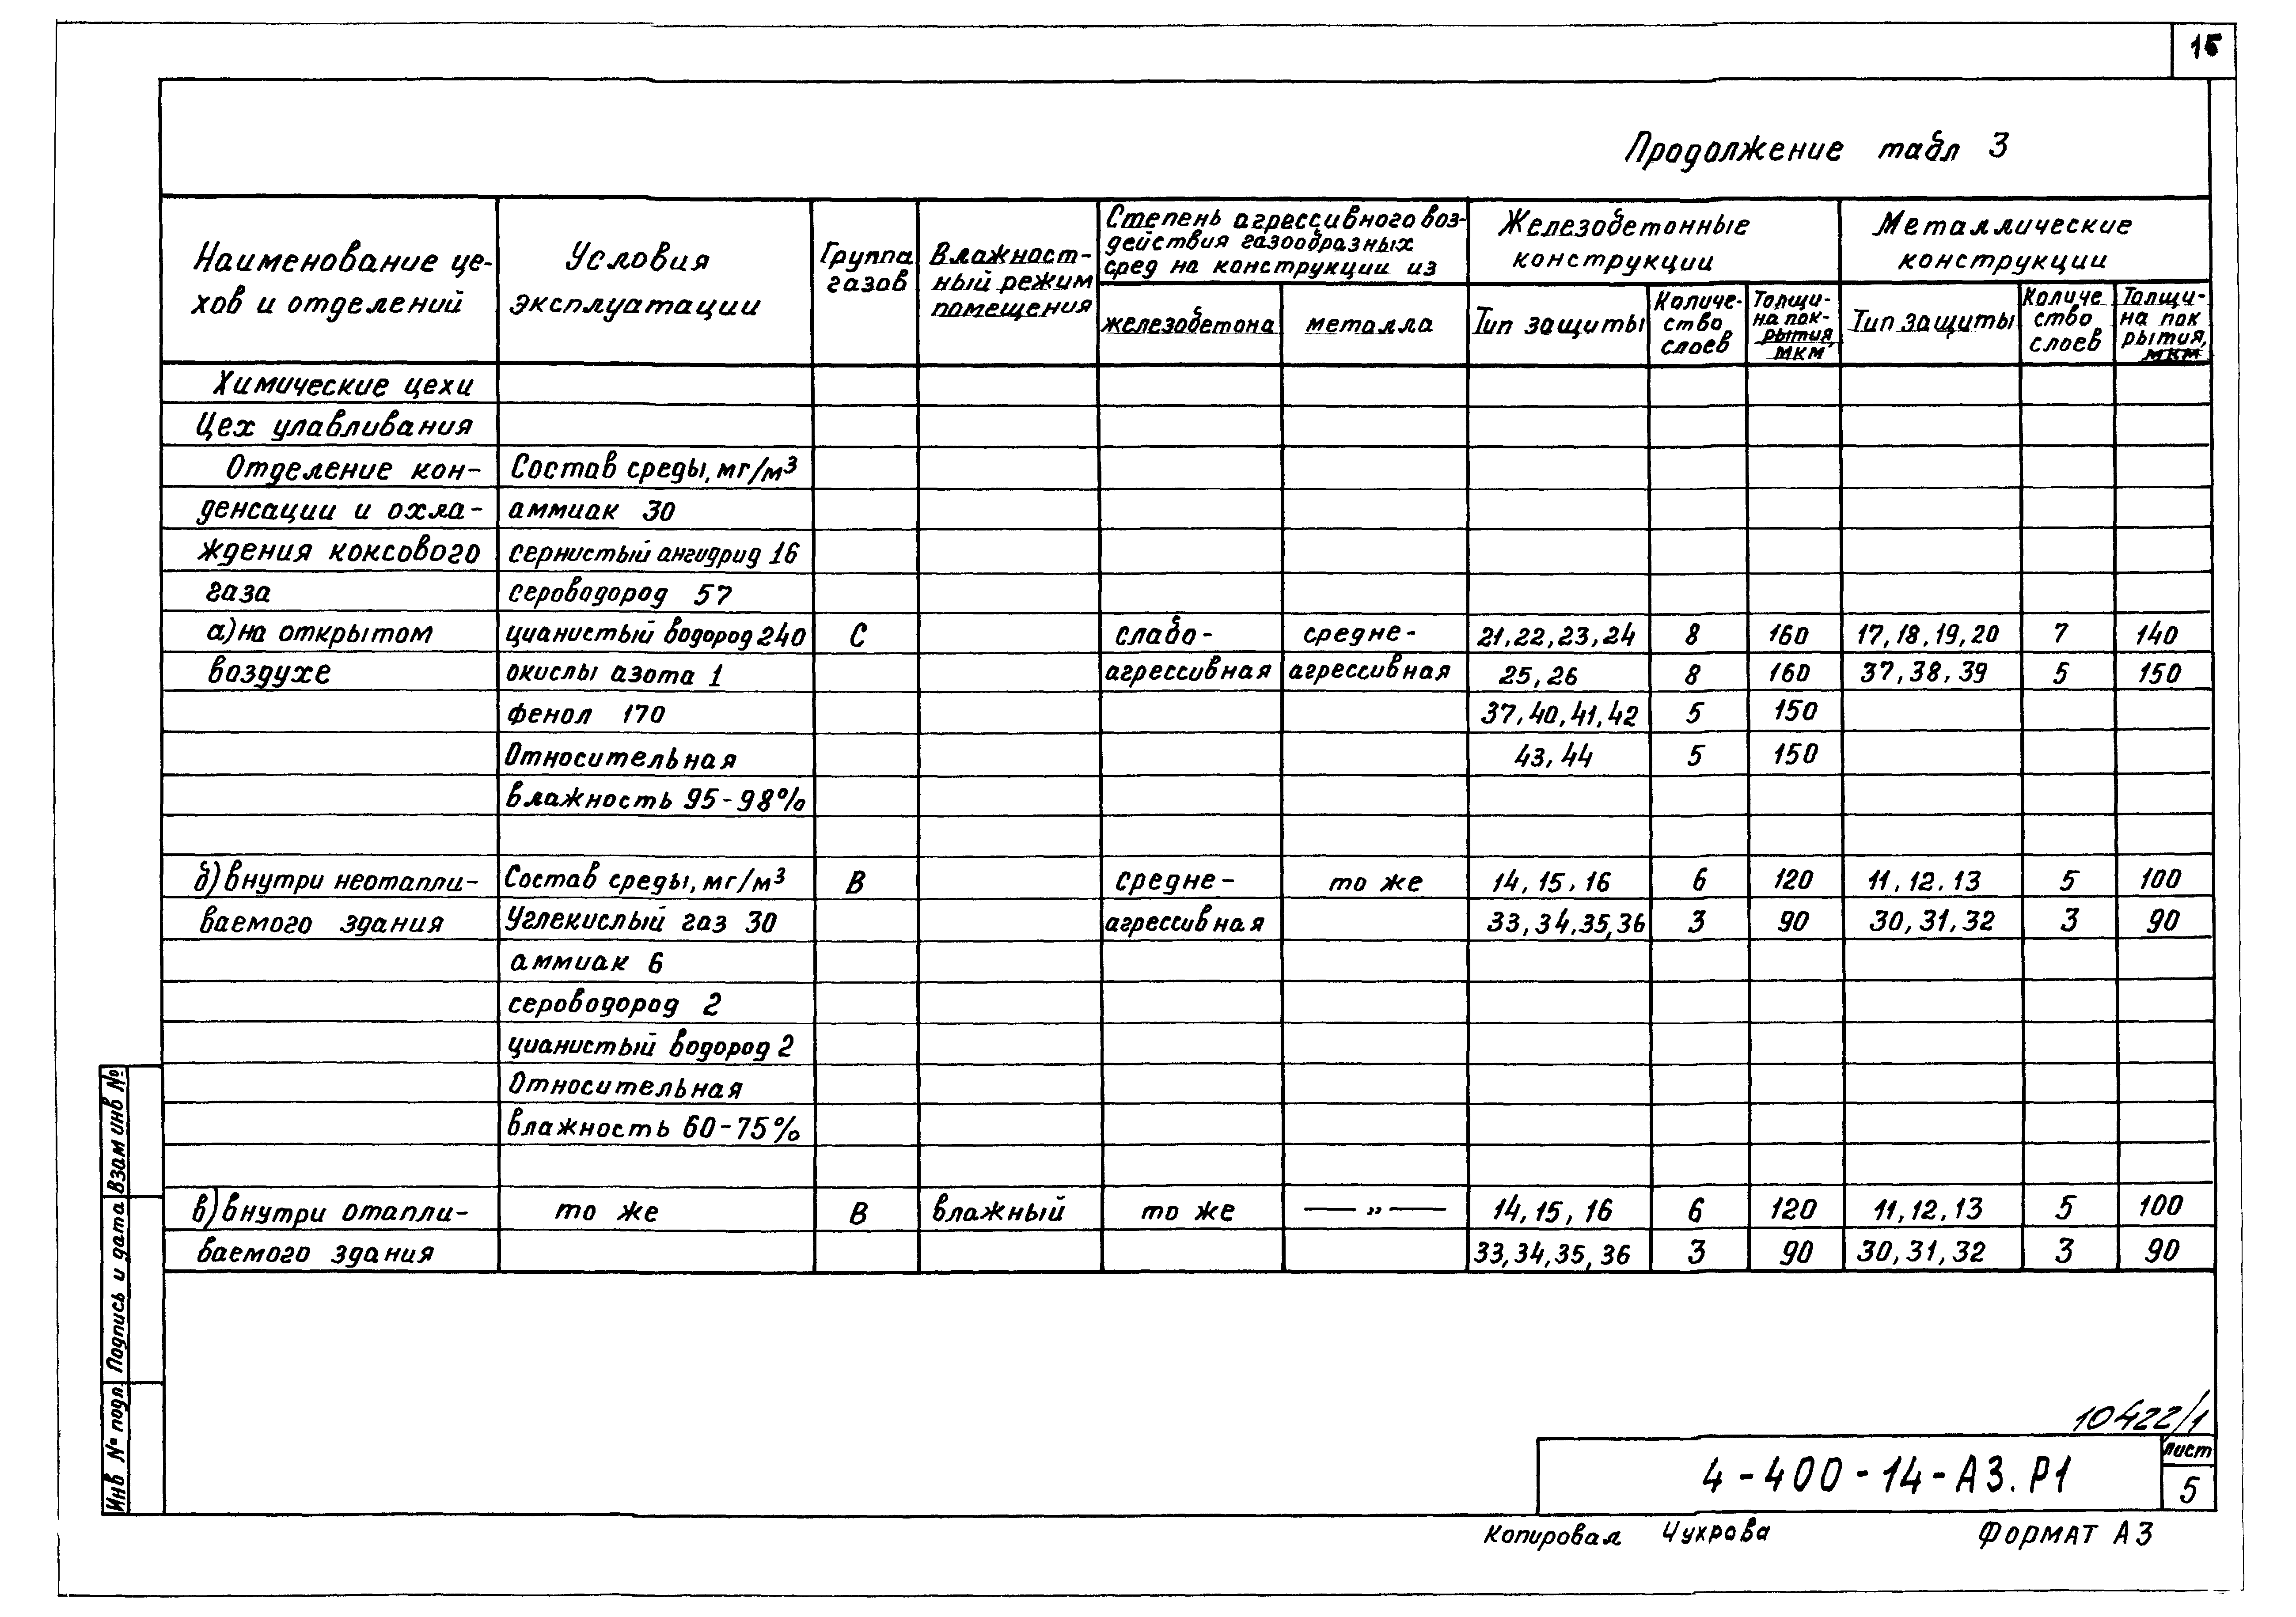 15
Продолжение табл 3
Наименование це-
хов и отделений
Условия
эксплуатации
Группа
газов
Влажност-
ный режим
помещения
Степень агрессивного воз-
действия газообразных
сред на конструкции из
железобетона
металла
Железобетонные
конструкции
Тип защиты
Количе-
ство
слоев
Толщи-
на пок-
рытия,
мкм
Металлические
конструкции
Тип защиты
Количе
ство
слоев
Толщи-
на пок
рытия,
мкм
Химические цехи
Цех улавливания
Отделение кон- Состав среды, мг/м³
денсации и охла- аммиак 30
ждения коксового сернистый ангидрид 16
газа сероводород 57
а) на открытом цианистый водород 240 С слабо- средне- 21,22,23,24 8 160 17,18,19,20 7 140
воздухе окислы азота 1 агрессивная агрессивная 25,26 8 160 37,38,39 5 150
фенол 170 37,40,41,42 5 150
Относительная 43,44 5 150
влажность 95-98%
б) внутри неотапли- Состав среды, мг/м³ В средне- то же 14,15,16 6 120 11,12.13 5 100
ваемого здания Углекислый газ 30 агрессивная 33,34,35,36 3 90 30,31,32 3 90
аммиак 6
сероводород 2
цианистый водород 2
Относительная
влажность 60-75%
в) внутри отапли- то же В влажный то же — " — 14,15,16 6 120 11,12,13 5 100
ваемого здания 33,34,35,36 3 90 30,31,32 3 90
Инв № подл. Подпись и дата Взам инв №
10422/1
4-400-14-А3.Р1
Лист
5
Копировал Чухрова Формат А3